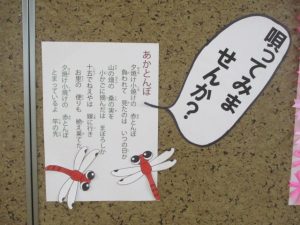 唄ってみま
せんか？
あかとんぼ
夕焼け小焼けの 赤とんぼ
負われて 見たのは いつの日か
山の畑の 桑の実を
小かごに摘んだは まぼろしか
十五でねえやは 嫁に行き
お里の 便りも 絶え果てた
夕焼け小焼けの 赤とんぼ
とまっているよ 竿の先